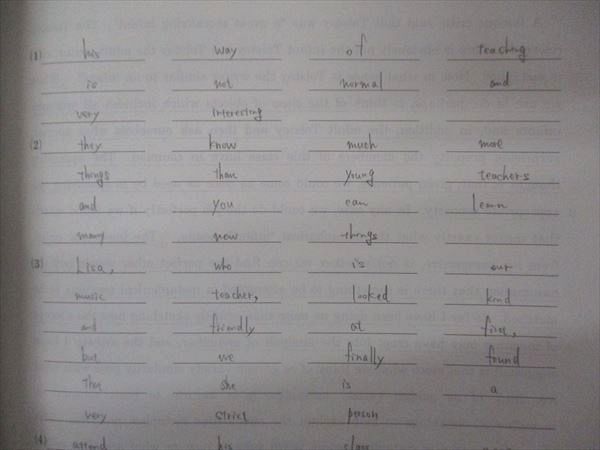 (1) his way of teaching
is not normal and
very interesting
(2) they know much more
things than young teachers
and you can learn
many new things
(3) Lisa, who is our
music teacher, looked kind
and friendly at first,
but we finally found
she is a
very strict person
(4) attend his class